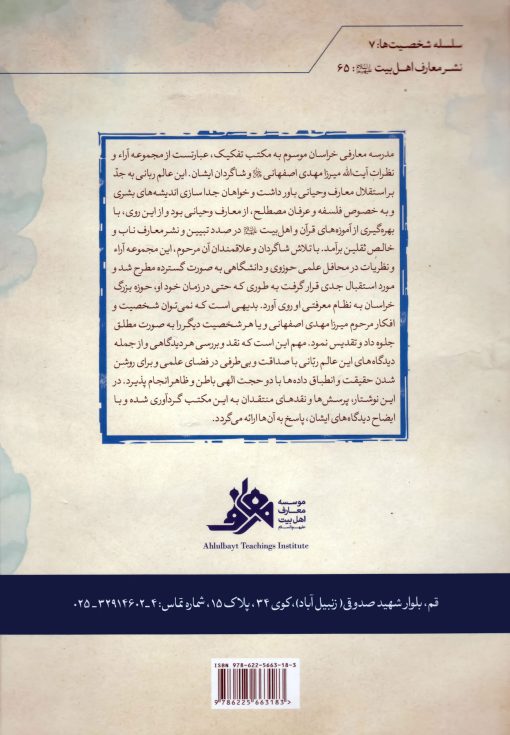 سلسله شخصیت‌ها: ۷
نشر معارف اهل بیت علیهم‌السلام: ۶۵
مدرسه معارفی خراسان موسوم به مکتب تفکیک، عبارتست از مجموعه آراء و
نظرات آیت‌الله میرزا مهدی اصفهانی و شاگردان ایشان. این عالم ربانی به جدّ
بر استقلال معارف وحیانی باور داشت و خواهان جداسازی اندیشه‌های بشری
و به خصوص فلسفه و عرفان مصطلح، از معارف وحیانی بود و از این روی، با
بهره‌گیری از آموزه‌های قرآن و اهل بیت در صدد تبیین و نشر معارف ناب و
خالص ثقلین برآمد. با تلاش شاگردان و علاقمندان آن مرحوم، این مجموعه آراء
و نظریات در محافل علمی حوزوی و دانشگاهی به صورت گسترده مطرح شد و
مورد استقبال جدی قرار گرفت به طوری که حتی در زمان خود او، حوزه بزرگ
خراسان به نظام معرفتی او روی آورد. بدیهی است که نمی‌توان شخصیت و
افکار مرحوم میرزا مهدی اصفهانی و یا هر شخصیت دیگر را به صورت مطلق
جلوه داد و تقدیس نمود. مهم این است که نقد و بررسی هر دیدگاهی و از جمله
دیدگاه‌های این عالم ربّانی با صداقت و بی‌طرفی در فضای علمی و برای روشن
شدن حقیقت و انطباق داده‌ها با دو حجت الهی باطن و ظاهر انجام پذیرد. در
این نوشتار، پرسش‌ها و نقدهای منتقدان به این مکتب گردآوری شده و با
ایضاح دیدگاه‌های ایشان، پاسخ به آن‌ها ارائه می‌گردد.
موسسه
معارف
اهل بیت
علیهم‌السلام
معارف
Ahlulbayt Teachings Institute
قم، بلوار شهید صدوقی (زنبیل آباد)، کوی ۳۴، پلاک ۱۵، شماره تماس: ۴_۳۲۹۱۴۶۰۲_۰۲۵
ISBN 978-622-5663-18-3
9 786225 663183 >